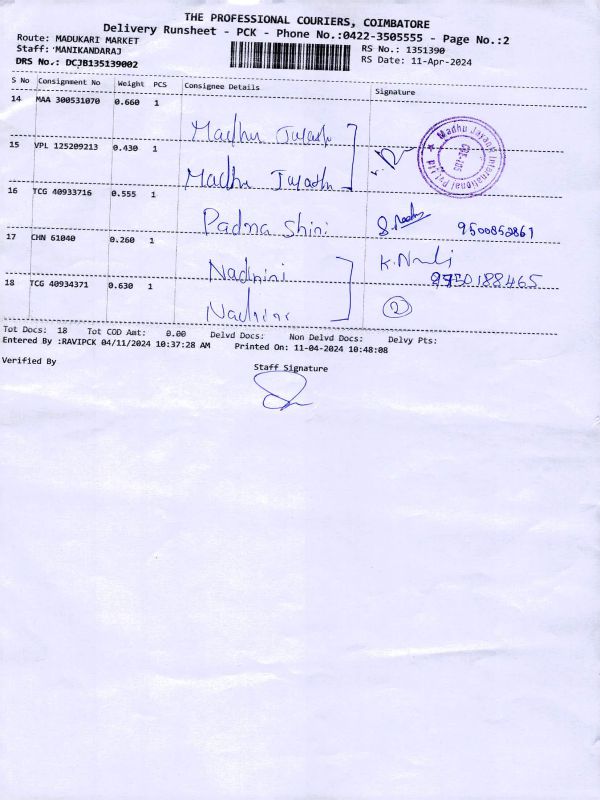 THE PROFESSIONAL COURIERS, COIMBATORE
Delivery Runsheet - PCK - Phone No.:0422-3505555 - Page No.:2
Route: MADUKARI MARKET
Staff: MANIKANDARAJ
RS No.: 1351390
DRS No.: DCJB135139002
RS Date: 11-Apr-2024
S No Consignment No Weight PCS Consignee Details Signature
14 MAA 300531070 0.660 1
Madhu Jayash
15 VPL 125209213 0.430 1
Madhu Jayash
Madhu Jayanti International Pvt Ltd
16 TCG 40933716 0.555 1
Padma Shini
9500852861
17 CHN 61040 0.260 1
Nadnini
K. 
9750188465
18 TCG 40934371 0.630 1
Nadnini
2
Tot Docs: 18 Tot COD Amt: 0.00 Delvd Docs: Non Delvd Docs: Delvy Pts:
Entered By :RAVIPCK 04/11/2024 10:37:28 AM Printed On: 11-04-2024 10:48:08
Verified By
Staff Signature